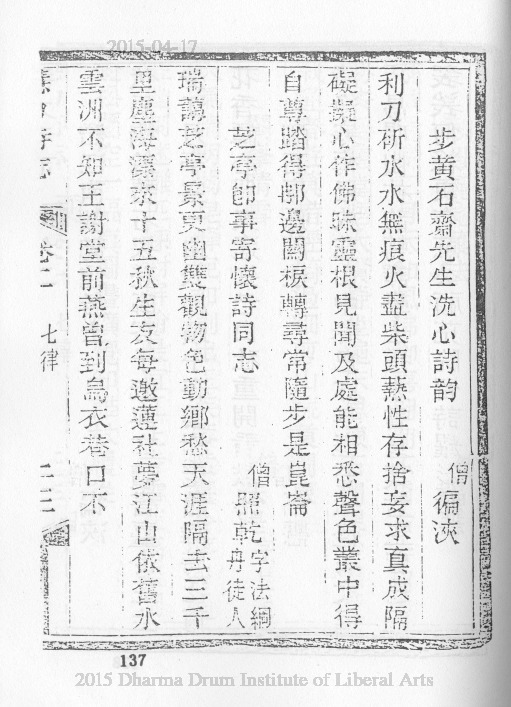 2015-04-17
步黃石齋先生洗心詩韵
僧徧浹
利刀斫水水無痕火盡柴頭爇性存捨妄求真成隔
礙擬心作佛昧靈根見聞及處能相悉聲色叢中得
自尊踏得那邊關棙轉尋常隨步是崑崙
芝亭卽事寄懷詩同志
僧照乾字法綱丹徒人
瑞藹芝亭景更幽雙觀物色動鄉愁天涯隔去三千
里塵海漂來十五秋生友每邀蓮社夢江山依舊水
雲洲不知王謝堂前燕曾到烏衣巷口不
寺志
卷二
七律
137
2015 Dharma Drum Institute of Liberal Arts